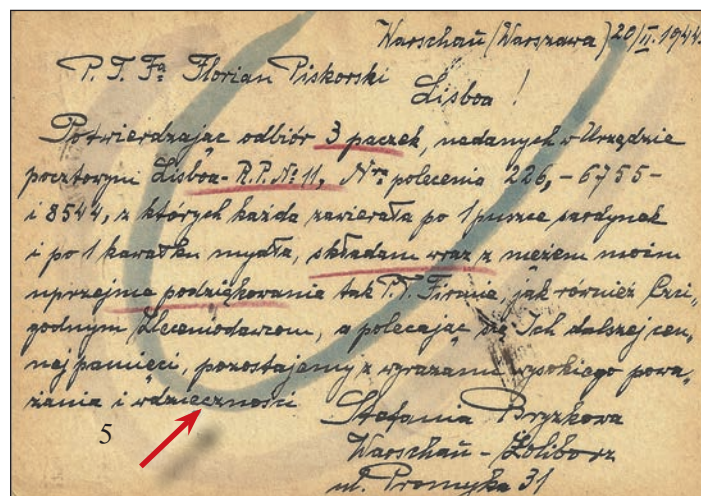 Warschau (Warszawa) 20/II. 1944.
P. T. Fa Florian Piskorski
Lisboa!
Potwierdzając odbiór 3 paczek, nadanych w Urzędzie
pocztowym Lisboa - R.P. № 11, Nra polecenia 226, - 6755 -
i 8544, z których każda zawierała po 1 puszce sardynek
i po 1 kawałku mydła, składam wraz z mężem moim
uprzejme podziękowanie tak P.T. Firmie, jak również Czci,
godnym Zleceniodawcom, a polecając się Ich dalszej cen,
nej pamięci, pozostajemy z wyrazami wysokiego powa,
żania i wdzięczności
Stefania Bryzkowa
Warschau - Żoliborz
ul. Promyka 31
5